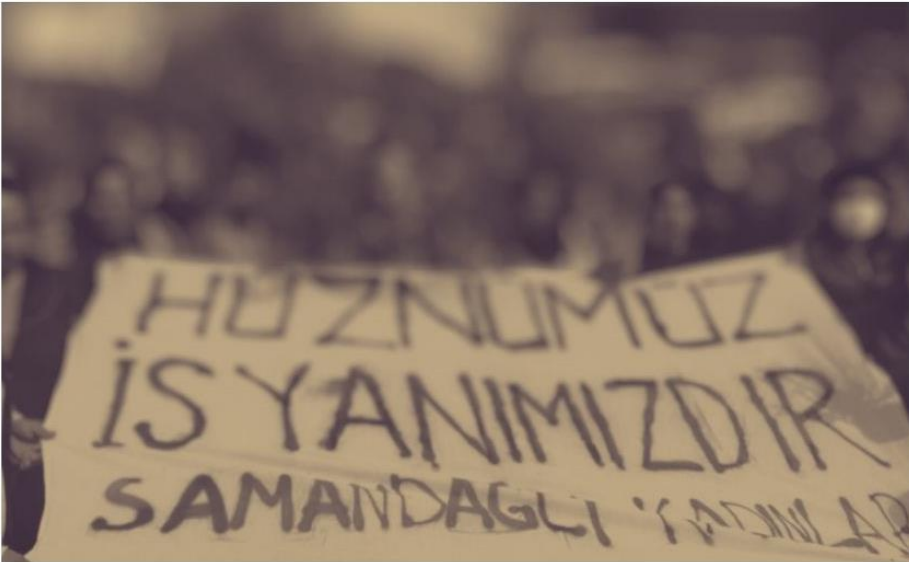 HÜZNÜMÜZ
İSYANIMIZDIR
SAMANDAĞLI KADINLAR